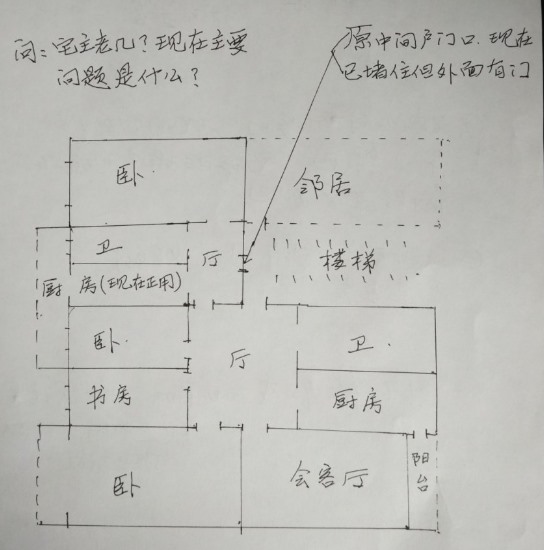 问：宅主老几？现在主要
问题是什么？
原中间户门口.现在
已堵住但外面有门
卧
邻居
卫
厅
楼梯
厨房(现在正用)
卧
厅
卫
书房
厨房
卧
会客厅
阳台